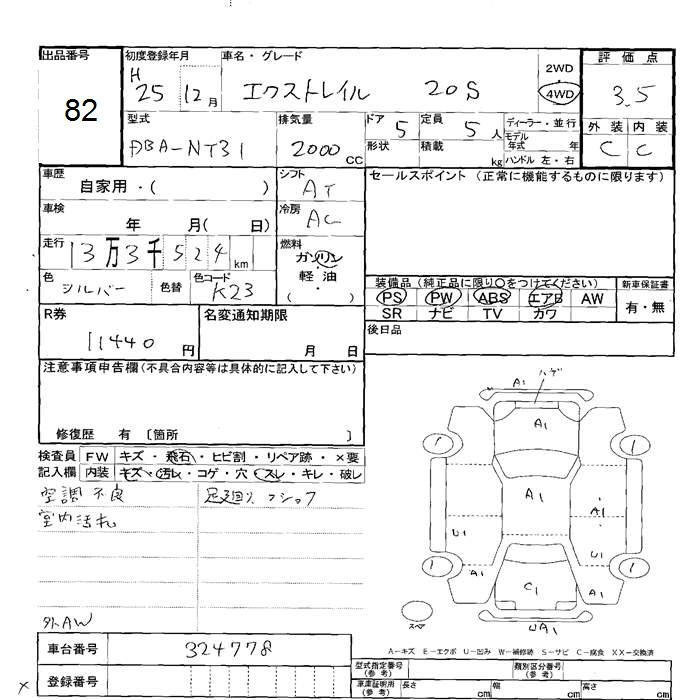 出品番号 初度登録年月 車名・グレード 評価点
82
H 25 12月 エクストレイル 20S 2WD 4WD 3.5
型式 排気量 ドア 5 定員 5人 ディーラー・並行 外装 内装
DBA-NT31 2000cc 形状 積載 kg モデル年式 年 C C
ハンドル 左・右
車歴 シフト セールスポイント (正常に機能するものに限ります)
自家用・( ) AT
車検 冷房
年 月( 日) AC
走行 13万3千524km 燃料
ガソリン・軽油
( )
色 シルバー 色替 色コード K23
装備品 (純正品に限り○をつけてください) 新車保証書
PS PW ABS エアB AW 有・無
SR ナビ TV カワ
R券 名変通知期限 後日品
11440円 月 日
注意事項申告欄(不具合内容等は具体的に記入して下さい)
修復歴 有 〔箇所 〕
検査員 FW キズ・飛石・ヒビ割・リペア跡・×要
記入欄 内装 キズ・汚れ・コゲ・穴・スレ・キレ・破レ
空調不良 足廻り
室内汚れ
外AW
ハゲ
A1
A1
A1 A1
U1 U1
A1 C1 A1
UA1
スペア
A-キズ E-エクボ U-凹み W-補修跡 S-サビ C-腐食 XX-交換済
車台番号 324778
登録番号
型式指定番号(参考) 類別区分番号(参考)
車庫証明用(参考) 長さ cm 幅 cm 高さ cm
×